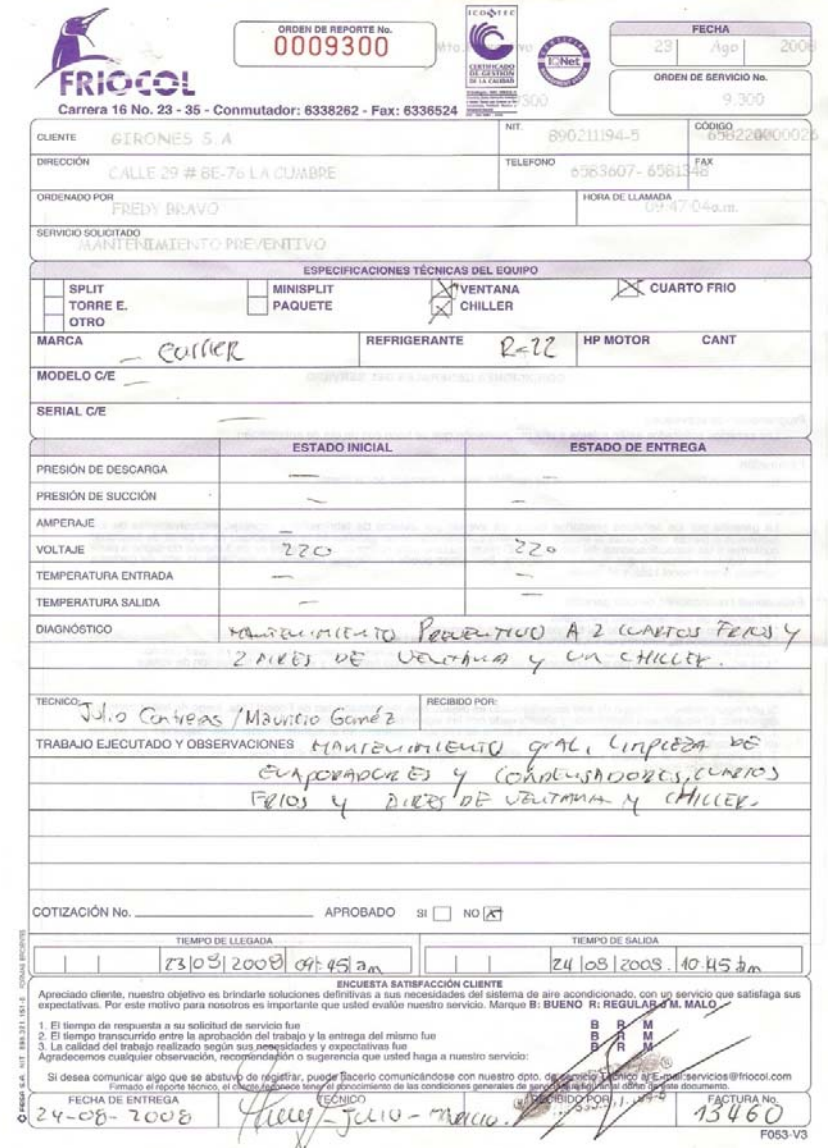 ORDEN DE REPORTE No.
0009300
ICONTEC
CERTIFICADO
DE GESTIÓN
DE LA CALIDAD
IQNet
FECHA
23 Ago 2008
ORDEN DE SERVICIO No.
9.300
FRIOCOL
Carrera 16 No. 23 - 35 - Conmutador: 6338262 - Fax: 6336524
CLIENTE GIRONES S.A NIT. 890211194-5 CÓDIGO
DIRECCIÓN CALLE 29 # 8E-76 LA CUMBRE TELEFONO 6583607- 6581348 FAX
ORDENADO POR FREDY BRAVO HORA DE LLAMADA 09:47:04a.m.
SERVICIO SOLICITADO
MANTENIMIENTO PREVENTIVO
ESPECIFICACIONES TÉCNICAS DEL EQUIPO
SPLIT MINISPLIT VENTANA CUARTO FRIO
TORRE E. PAQUETE CHILLER
OTRO
MARCA Carrier REFRIGERANTE R-22 HP MOTOR CANT
MODELO C/E
SERIAL C/E
ESTADO INICIAL ESTADO DE ENTREGA
PRESIÓN DE DESCARGA
PRESIÓN DE SUCCIÓN
AMPERAJE
VOLTAJE 220 220
TEMPERATURA ENTRADA
TEMPERATURA SALIDA
DIAGNÓSTICO MANTENIMIENTO PREVENTIVO A 2 CUARTOS FRIOS Y
2 AIRES DE VENTANA Y UN CHILLER.
TECNICO: Julio Contreras / Mauricio Goméz RECIBIDO POR:
TRABAJO EJECUTADO Y OBSERVACIONES MANTENIMIENTO gral, LIMPIEZA DE
EVAPORADORES Y CONDENSADORES, CUARTOS
FRIOS Y AIRES DE VENTANA Y CHILLER.
COTIZACIÓN No. APROBADO SI NO X
TIEMPO DE LLEGADA TIEMPO DE SALIDA
23 08 2008 09:45 am 24 08 2008. 10:45 am
ENCUESTA SATISFACCIÓN CLIENTE
Apreciado cliente, nuestro objetivo es brindarle soluciones definitivas a sus necesidades del sistema de aire acondicionado, con un servicio que satisfaga sus
expectativas. Por este motivo para nosotros es importante que usted evalúe nuestro servicio. Marque B: BUENO R: REGULAR ó M. MALO
1. El tiempo de respuesta a su solicitud de servicio fue B R M
2. El tiempo transcurrido entre la aprobación del trabajo y la entrega del mismo fue B R M
3. La calidad del trabajo realizado según sus necesidades y expectativas fue B R M
Agradecemos cualquier observación, recomendación o sugerencia que usted haga a nuestro servicio:
Si desea comunicar algo que se abstuvo de registrar, puede hacerlo comunicándose con nuestro dpto. de servicio Técnico a E-mail:servicios@friocol.com
Firmado el reporte técnico, el cliente reconoce tener el conocimiento de las condiciones generales de servicio que figuran al dorso de este documento.
FECHA DE ENTREGA TÉCNICO RECIBIDO POR FACTURA No.
24-08-2008 Julio - Mauricio. 13460
F053-V3